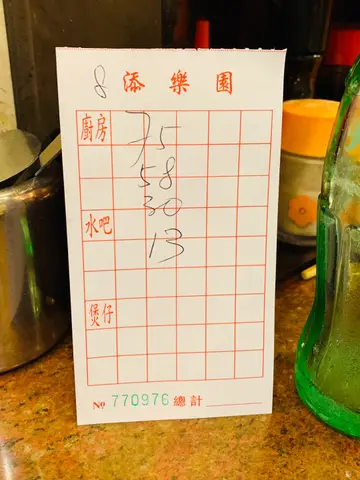 8 添樂園
廚房 75
58
30
水吧 13
煲仔
№ 770976 總計